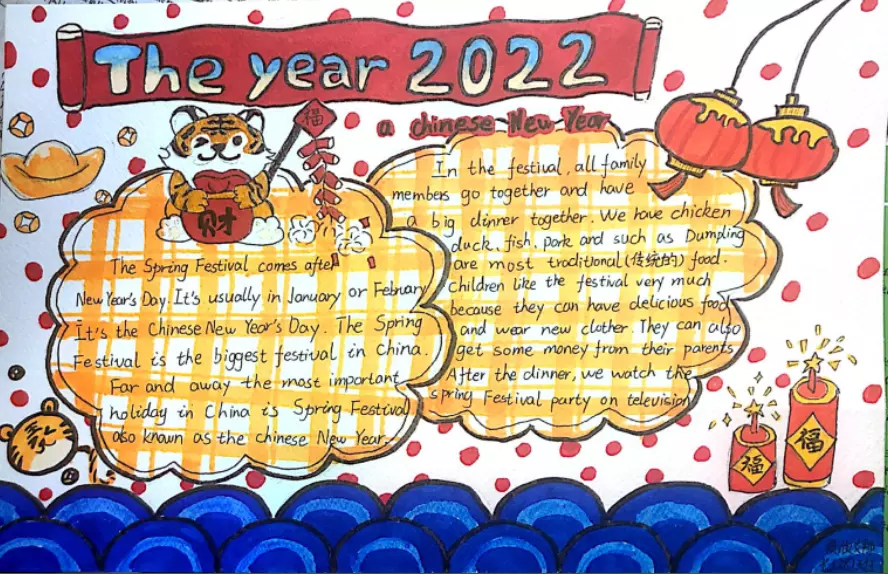 The year 2022
a chinese New Year
福
财
The Spring Festival comes after
New Year's Day. It's usually in January or Februry
It's the Chinese New Year's Day. The Spring
Festival is the biggest festival in China.
Far and away the most important
holiday in China is Spring Festival
also known as the chinese New Year.
In the festival, all family
members go together and have
a big dinner together. We have chicken
duck, fish, pork and such as Dumpling
are most traditional (传统的) food.
Children like the festival very much
because they can have delicious food
and wear new clother. They can also
get some money from their parents
After the dinner, we watch the
spring Festival party on television
福
福